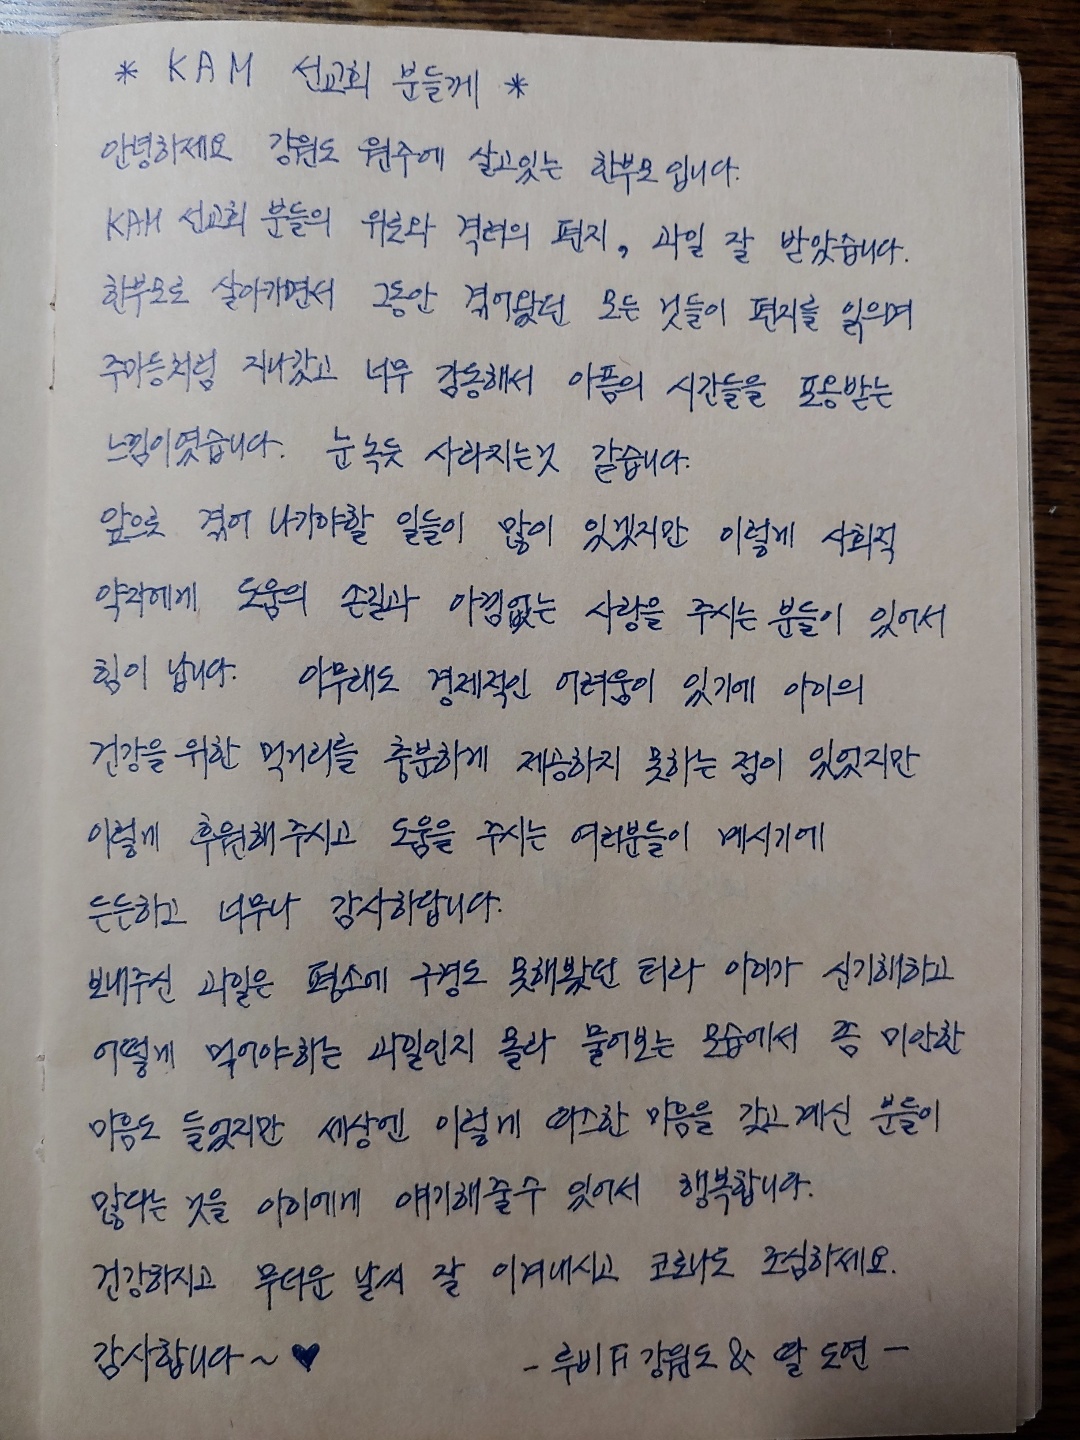 * KAM 선교회 분들께 *
안녕하세요 강원도 원주에 살고있는 한부모 입니다.
KAM 선교회 분들의 위로와 격려의 편지, 과일 잘 받았습니다.
한부모로 살아가면서 그동안 겪어왔던 모든 것들이 편지를 읽으며
주마등처럼 지나갔고 너무 감동해서 아픔의 시간들을 포옹받는
느낌이였습니다. 눈녹듯 사라지는것 같습니다.
앞으로 겪어 나가야할 일들이 많이 있겠지만 이렇게 사회적
약자에게 도움의 손길과 아낌없는 사랑을 주시는 분들이 있어서
힘이 납니다. 아무래도 경제적인 어려움이 있기에 아이의
건강을 위한 먹거리를 충분하게 제공하지 못하는 점이 있었지만
이렇게 후원해 주시고 도움을 주시는 여러분들이 계시기에
든든하고 너무나 감사하답니다.
보내주신 과일은 평소에 구경도 못해봤던 터라 아이가 신기해하고
어떻게 먹어야하는 과일인지 몰라 물어보는 모습에서 좀 미안한
마음도 들었지만 세상엔 이렇게 따스한 마음을 갖고계신 분들이
많다는 것을 아이에게 얘기해줄수 있어서 행복합니다.
건강하시고 무더운 날씨 잘 이겨내시고 코로나도 조심하세요.
감사합니다~ ♥ - 루비 강원도 & 딸 도연 -